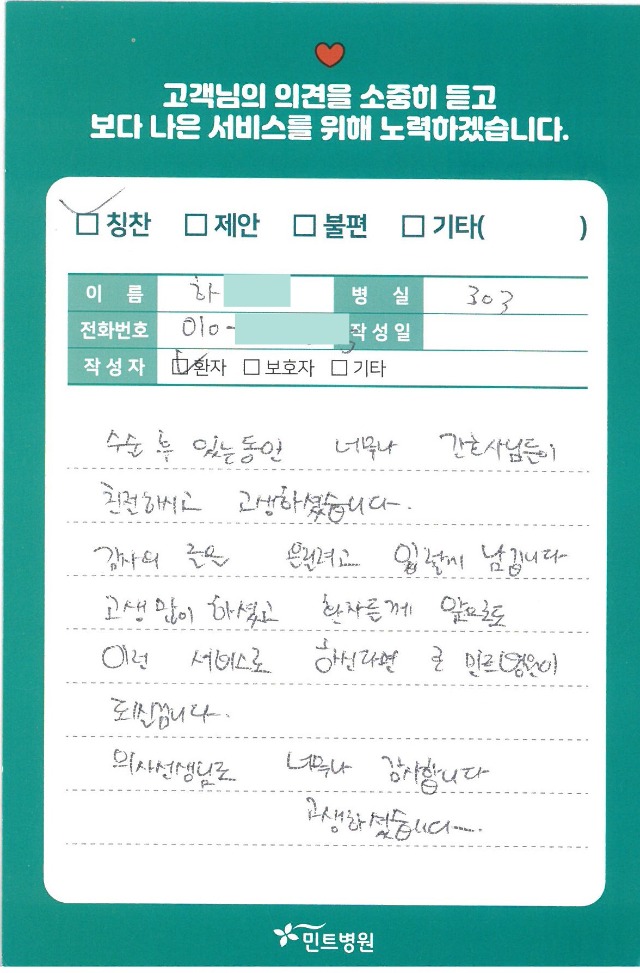 고객님의 의견을 소중히 듣고
보다 나은 서비스를 위해 노력하겠습니다.
□ 칭찬 □ 제안 □ 불편 □ 기타( )
이 름 하 병 실 303
전화번호 010- 작성일
작성자 □환자 □보호자 □기타
수술 후 있는동안 너무나 간호사님들이
친절하시고 고생하셨습니다.
감사의 글은 올릴려고 이렇게 남깁니다
고생 많이 하셨고 환자들께 앞으로도
이런 서비스로 하신다면 큰 민트병원이
되실겁니다.
의사선생님도 너무나 감사합니다
고생하셨습니다.
민트병원